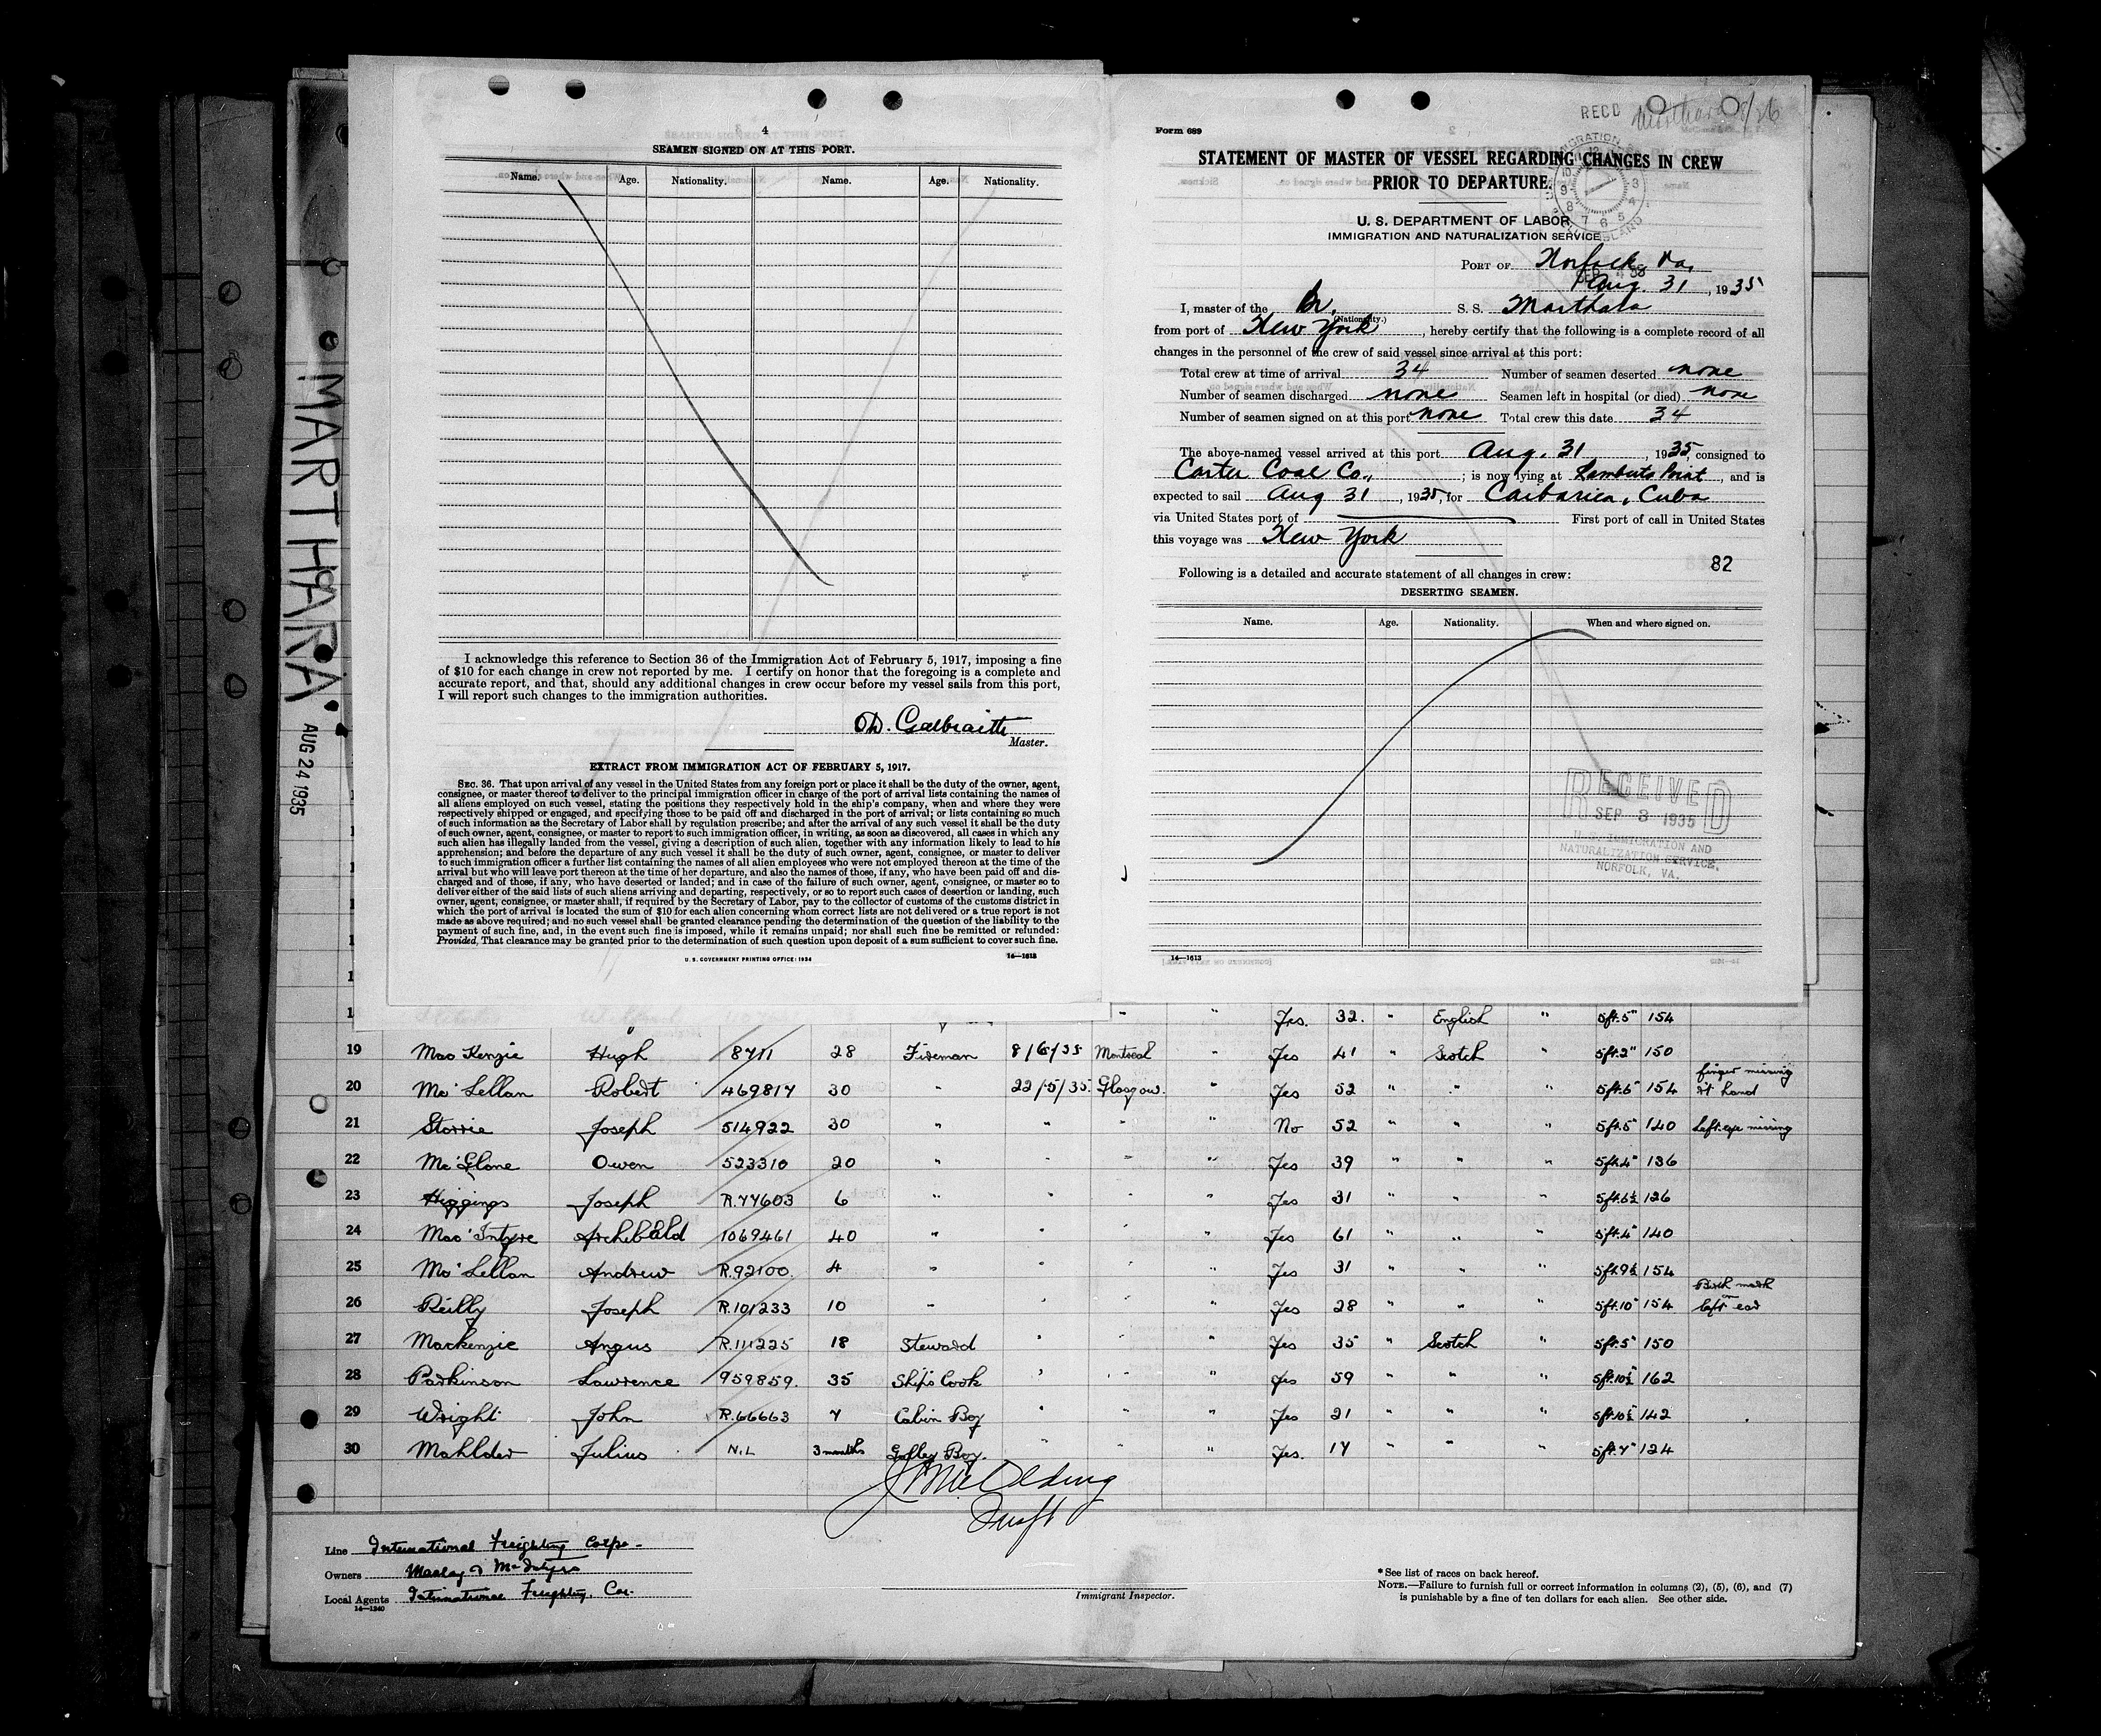 MARTHARA
AUG 24 1935
4
SEAMEN SIGNED ON AT THIS PORT.
Name. Age. Nationality. Name. Age. Nationality.
I acknowledge this reference to Section 36 of the Immigration Act of February 5, 1917, imposing a fine
of $10 for each change in crew not reported by me. I certify on honor that the foregoing is a complete and
accurate report, and that, should any additional changes in crew occur before my vessel sails from this port,
I will report such changes to the immigration authorities.
D. Galbraith
Master.
EXTRACT FROM IMMIGRATION ACT OF FEBRUARY 5, 1917.
SEC. 36. That upon arrival of any vessel in the United States from any foreign port or place it shall be the duty of the owner, agent,
consignee, or master thereof to deliver to the principal immigration officer in charge of the port of arrival lists containing the names of
all aliens employed on such vessel, stating the positions they respectively hold in the ship's company, when and where they were
respectively shipped or engaged, and specifying those to be paid off and discharged in the port of arrival; or lists containing so much
of such information as the Secretary of Labor shall by regulation prescribe; and after the arrival of any such vessel it shall be the duty
of such owner, agent, consignee, or master to report to such immigration officer, in writing, as soon as discovered, all cases in which any
such alien has illegally landed from the vessel, giving a description of such alien, together with any information likely to lead to his
apprehension; and before the departure of any such vessel it shall be the duty of such owner, agent, consignee, or master to deliver
to such immigration officer a further list containing the names of all alien employees who were not employed thereon at the time of the
arrival but who will leave port thereon at the time of her departure, and also the names of those, if any, who have been paid off and dis-
charged and of those, if any, who have deserted or landed; and in case of the failure of such owner, agent, consignee, or master so to
deliver either of the said lists of such aliens arriving and departing, respectively, or so to report such cases of desertion or landing, such
owner, agent, consignee, or master shall, if required by the Secretary of Labor, pay to the collector of customs of the customs district in
which the port of arrival is located the sum of $10 for each alien concerning whom correct lists are not delivered or a true report is not
made as above required; and no such vessel shall be granted clearance pending the determination of the question of the liability to the
payment of such fine, and, in the event such fine is imposed, while it remains unpaid; nor shall such fine be remitted or refunded:
Provided, That clearance may be granted prior to the determination of such question upon deposit of a sum sufficient to cover such fine.
U. S. GOVERNMENT PRINTING OFFICE: 1934 14—1613
RECD Marthara 8/26
Form 689
STATEMENT OF MASTER OF VESSEL REGARDING CHANGES IN CREW
PRIOR TO DEPARTURE.
U. S. DEPARTMENT OF LABOR
IMMIGRATION AND NATURALIZATION SERVICE
PORT OF Norfolk, Va.
Aug. 31, 1935
I, master of the Br. (Nationality.) S. S. Marthara
from port of New York, hereby certify that the following is a complete record of all
changes in the personnel of the crew of said vessel since arrival at this port:
Total crew at time of arrival 34 Number of seamen deserted none
Number of seamen discharged none Seamen left in hospital (or died) none
Number of seamen signed on at this port none Total crew this date 34
The above-named vessel arrived at this port Aug. 31, 1935, consigned to
Carter Coal Co., ; is now lying at Lamberts Point, and is
expected to sail Aug 31, 1935, for Caibarien, Cuba
via United States port of First port of call in United States
this voyage was New York
82
Following is a detailed and accurate statement of all changes in crew:
DESERTING SEAMEN.
Name. Age. Nationality. When and where signed on.
RECEIVED
SEP 3 1935
U.S. IMMIGRATION AND
NATURALIZATION SERVICE.
NORFOLK, VA.
14—1613
" " Yes. 32. " English " 5ft.5" 154
19 Mac Kenzie Hugh 8711 28 Fireman 8/6/35 Montreal " Yes 41 " Scotch " 5ft.2" 150
20 Mc'Lellan Robert 469817 30 " 22/5/35. Glasgow. " Yes 52 " " " 5ft.6" 154 finger missing rt hand
21 Storrie Joseph 514922 30 " " " " No 52 " " " 5ft.5" 140 Left eye missing
22 Mc'Glone Owen 523310 20 " " " " Yes 39 " " " 5ft.4" 136
23 Higgings Joseph R.77603 6 " " " " Yes 31 " " " 5ft.6½ 126
24 Mac'Intyre Archibald 1069461 40 " " " " Yes 61 " " " 5ft.4" 140
25 Mc'Lellan Andrew R.92100. 4 " " " " Yes 31 " " " 5ft.9½ 154
26 Reilly Joseph R.101233 10 " " " " Yes 28 " " " 5ft.10" 154 Birth mark on left ear
27 Mackenzie Angus R.111225 18 Steward " " " Yes 35 " Scotch " 5ft.5" 150
28 Parkinson Lawrence 959859. 35 Ships Cook " " " Yes 59 " " " 5ft.10½ 162
29 Wright John R.66663 7 Cabin Boy " " " Yes 21 " " " 5ft.10½ 142
30 Mahlder Julius NiL 3 months Galley Boy. " " " Yes. 17 " " " 5ft.7" 124
Line International Freighting Corpn.
Owners Maclay & McIntyre
Local Agents International Freighting Cor.
14—1240
Immigrant Inspector.
* See list of races on back hereof.
NOTE.—Failure to furnish full or correct information in columns (2), (5), (6), and (7)
is punishable by a fine of ten dollars for each alien. See other side.